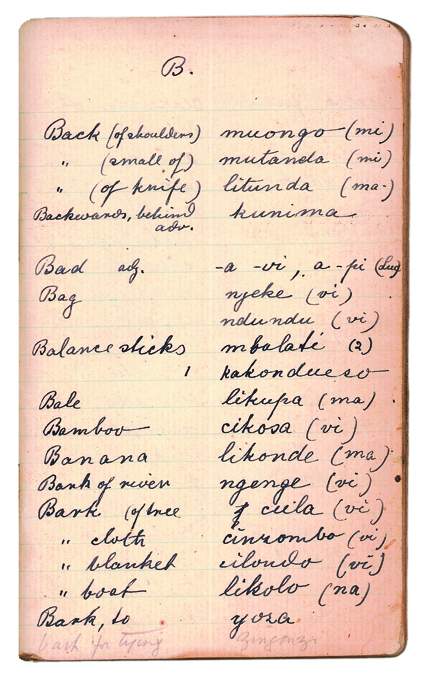 B.
Back (of shoulders) muongo (mi)
" (small of) mutanda (mi)
" (of knife) litunda (ma-)
Backwards, behind kunima
adv.
Bad adj. -a -vi, a -pi
Bag njeke (vi)
ndundu (vi)
Balance sticks mbalati (2)
kakondueso
Bale likupa (ma)
Bamboo cikosa (vi)
Banana likonde (ma)
Bank of river ngenge (vi)
Bark (of tree ciula (vi)
" cloth (vi)
" blanket cilondo (vi)
" boat likolo (na)
Bark, to yoza
bark for tying